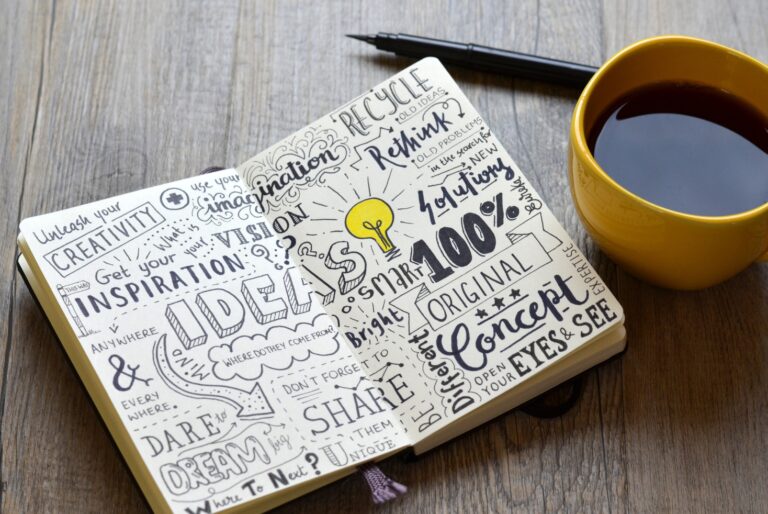 Unleash your
CREATIVITY
+
use your
imagination
What is
your
VISION
?
Get your
INSPIRATION
?
ANYWHERE
&
EVERY
WHERE.
MIND
IDEAS
WHERE DO THEY COME FROM?
DON'T FORGET
TO
SHARE
THEM
DARE to
DREAM big
WHERE TO NEXT?
BE
UNIQUE
RECYCLE
OLD IDEAS
Rethink
OLD PROBLEMS
in the search for
NEW
Solutions
SMART
Bright
100%
ORIGINAL
★★★
Concept
Different
OPEN
YOUR
EYES & SEE
EXPERTISE